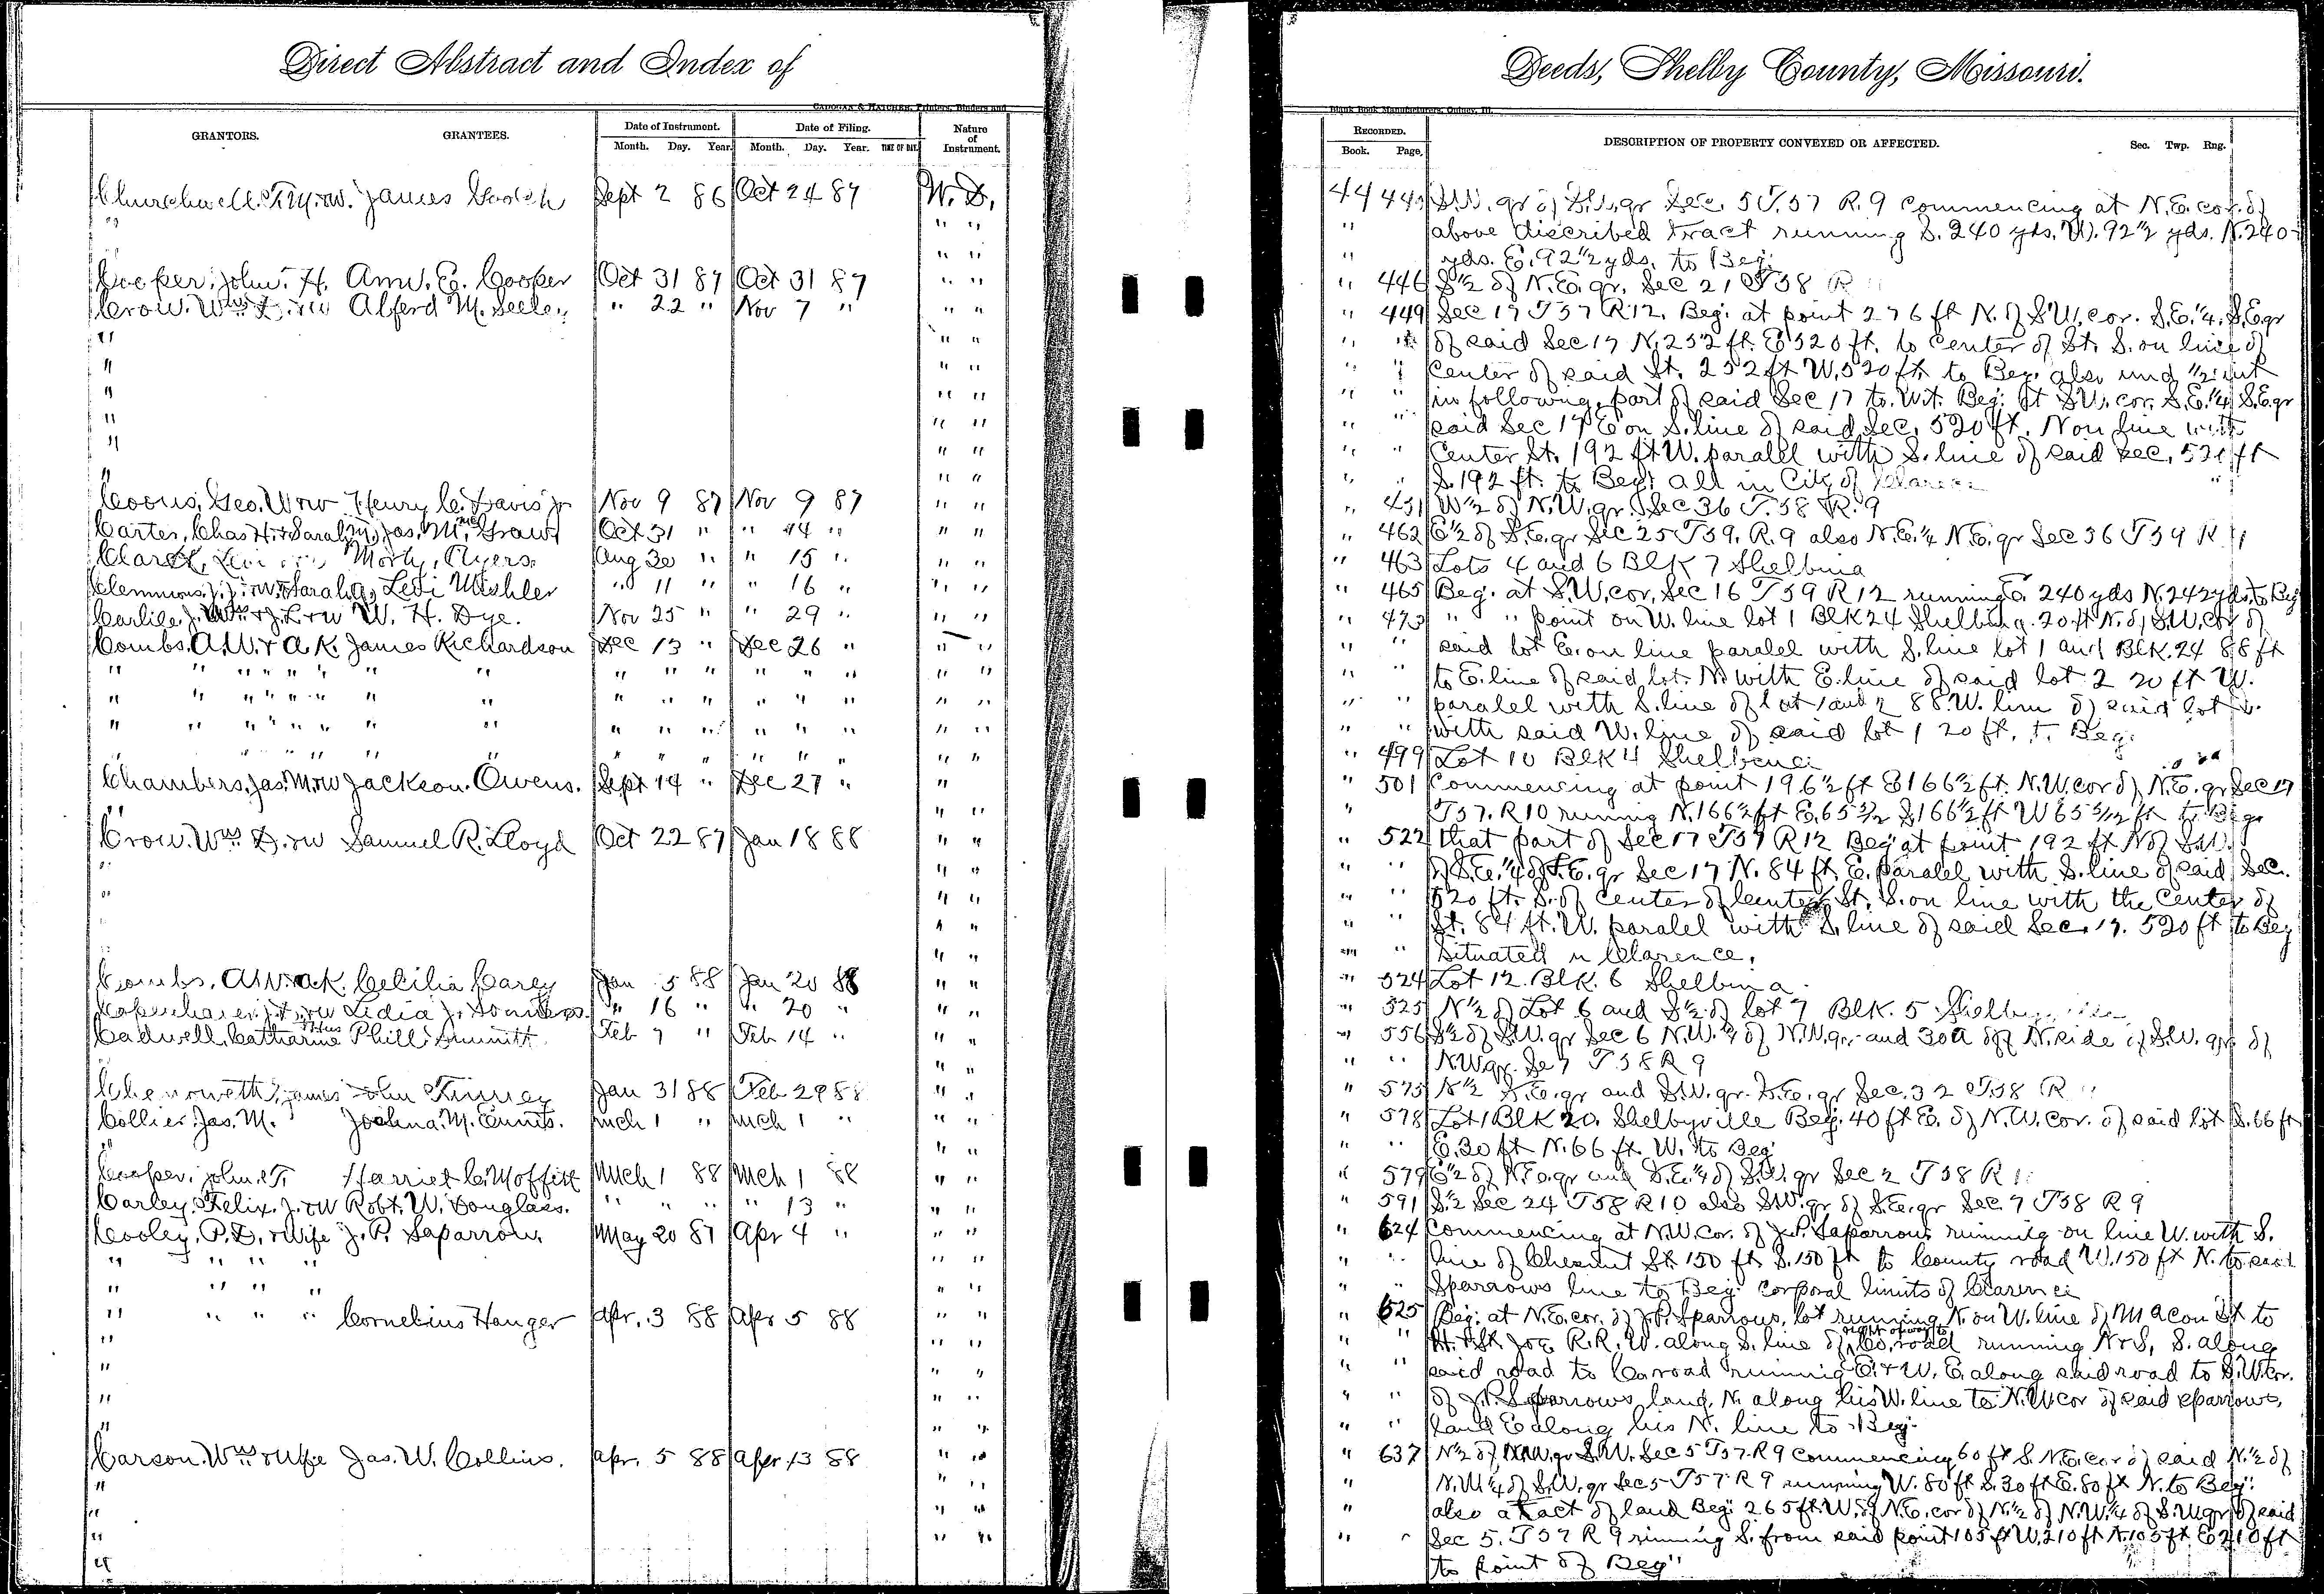 Direct Abstract and Index of
Deeds, Shelby County, Missouri.
CADOGAN & HATCHER, Printers, Binders and
Blank Book Manufacturers, Quincy, Ill.
GRANTORS. GRANTEES. Date of Instrument. Date of Filing. Nature of Instrument.
Month. Day. Year. Month. Day. Year. TIME OF DAY.
RECORDED. DESCRIPTION OF PROPERTY CONVEYED OR AFFECTED. Sec. Twp. Rng.
Book. Page.
Churchwell. T.M. rw. James Gooch Sept 2 86 Oct 24 87 W. D. 44 S.W. qr of S.W. qr Sec. 5 T. 57 R. 9 Commencing at N.E. cor. of
" " " " above discribed tract running S. 240 yds. W. 92½ yds. N. 240
" " " yds. E. 92½ yds. to Beg.
Cooper. John. H. Ann. E. Cooper Oct 31 87 Oct 31 87 " " " 446 S½ of N.E. qr. Sec 21 T 58 R
Crow. Wm D. rw Alferd M. Seeley " 22 " Nov 7 " " " " 449 Sec 17 T 57 R 12. Beg. at point 276 ft N. of S.W. cor. S.E. ¼ S.E. qr
" " " " of said Sec 17 N. 252 ft. E 520 ft. to center of St. S. on line of
" " " " Center of said St. 252 ft W. 520 ft to Beg. also und ½ int
" " " " " in following part of said Sec 17 to. Wit. Beg. at S.W. cor. S.E. ¼ S.E. qr
" " " " " said Sec 17 E on S. line of said Sec. 520 ft. N on line with
" " " " " Center St. 192 ft W. paralel with S. line of said Sec. 520 ft
" " " " S. 192 ft. to Beg. all in City of Clarence
Coons, Geo. W rw Henry C. Davis Jr Nov 9 87 Nov 9 87 " " " 451 W½ of N.W. qr. Sec 36 T. 58 R. 9
Carter, Chas H. & Sarah M. Jas. M. McGraw Oct 31 " " 14 " " " " 462 E½ of S.E. qr Sec 25 T 59. R. 9 also N.E. ¼ N.E. qr Sec 36 T 59 R
Clark, Levi Ayers Aug 30 " " 15 " " " " 463 Lots 4 and 6 Blk 7 Shelbina
Clemmons. J. J. rw. Sarah Levi Mishler " 11 " " 16 " " " " 465 Beg. at S.W. cor. Sec 16 T 59 R 12 running E. 240 yds N. 242 yds. to Beg
Carlile. J. Wm & J. L rw W. H. Dye. Nov 25 " " 29 " " " " 473 " " point on W. line lot 1 Blk 24 Shelbina. 20 ft N. of S.W. cor of
Combs. A. W. & A. K. James Richardson Dec 13 " Dec 26 " " " " " said lot E. on line paralel with S. line lot 1 and Blk. 24 88 ft
" " " " " " " " " " " " " " " " " " to E. line of said lot. N. with E. line of said lot 2 20 ft W.
" " " " " " " " " " " " " " " " " " paralel with S. line of lot 1 and 2 88. W. line of said lot
" " " " " " " " " " " " " " " " " " with said W. line of said lot 1 20 ft. to Beg.
" " " " " " " " " " " " " " " " " 499 Lot 10 Blk 4 Shelbina
Chambers, Jas. M. rw Jackson. Owens. Sept 14 " Dec 27 " " " 501 Commencing at point 196½ ft E 166½ ft. N.W. cor of N.E. qr Sec 17
" " " " T 57. R 10 running N. 166½ ft E. 65 3/12 S. 166½ ft W 65 3/12 ft to Beg.
Crow. Wm D. rw Samuel R. Lloyd Oct 22 87 Jan 18 88 " " " 522 that part of Sec 17 T 57 R 12 Beg at point 192 ft N of S.W.
" " " " " of S.E. ¼ of S.E. qr Sec 17 N. 84 ft. E. paralel with S. line of said Sec.
" " " " " 520 ft. S. of Center of Center St. S. on line with the Center of
" " " " " St. 84 ft. W. paralel with S. line of said Sec. 17. 520 ft to Beg
" " " " " Situated in Clarence.
Combs. A W. & A K. Cecilia Carey Jan 5 88 Jan 20 88 " " " 524 Lot 12. Blk. 6 Shelbina
Lidia J. " 16 " " 20 " " " " 525 N½ of Lot 6 and S½ of lot 7 Blk. 5 Shelbyville
Cadwell, Catharine Phill. Feb 7 " Feb 14 " " " " 556 S½ of S.W. qr Sec 6 N.W. ¼ of N.W. qr. and 30a off N. side of S.W. qr. of
" " " " N W qr. Se 7 T 58 R 9
Chenoweth, James John Tinney Jan 31 88 Feb 29 88 " " " 575 N½ S.E. qr and S.W. qr. S.E. qr Sec. 32 T 58 R
Collier. Jas. M. Joshua. M. Ennis. Mch 1 " Mch 1 " " " " 578 Lot 1 Blk 20. Shelbyville Beg. 40 ft E. of N.W. Cor. of said lot S. 66 ft
" " " " E. 30 ft N. 66 ft. W. to Beg
Cooper. John. T. Harriet C. Moffitt Mch 1 88 Mch 1 88 " " " 579 E½ of N.E. qr and S.E. ¼ of S.W. qr Sec 2 T 58 R
Carley. Felix. J. rw Robt. W. Douglass. " " " " 13 " " " " 591 S½ Sec 24 T 58 R 10 also S.W. qr of S.E. qr Sec. 7 T 58 R 9
Cooley. P. D. & Wife J. P. Saparrow. May 20 87 Apr 4 " " " " 624 Commencing at N.W. Cor. of J.P. Saparrows running on line W. with S.
" " " " " " " " line of Chesnut St. 150 ft S. 150 ft to County road W. 150 ft N. to said
" " " " " " " " Sparrows line to Beg. Corporal limits of Clarence
" " " " Cornelius Hanger Apr. 3 88 Apr 5 88 " " " 625 Beg. at N.E. cor. of J.P. Sparrows, lot running N. on W. line of Macon St to
" " " " " H. & St Joe R.R. W. along S. line of right of way to Co. road running N & S, S. along
" " " " " said road to Co. road running E. & W. E. along said road to S.W. cor.
" " " " " of J.P. Sparrows land, N. along his W. line to N.W. cor of said Sparrows,
" " " " " land E along his N. line to Beg.
Carson. Wm & Wife Jas. W. Collins. Apr. 5 88 Apr 13 88 " " " 637 N½ of N.W. qr S.W. Sec 5 T 57 R 9 Commencing 60 ft S. N.E. cor of said N.½ of
" " " " N.W ¼ of S.W. qr Sec 5 T 57 R 9 running W. 80 ft S. 30 ft E. 80 ft N. to Beg.
" " " " also a tract of land Beg. 265 ft W. of N.E. cor of N½ of N.W. ¼ of S.W. qr of said
" " " " " Sec 5. T 57 R 9 running S. from said point 105 ft W. 210 ft N. 105 ft. E 210 ft
" to point of Beg"